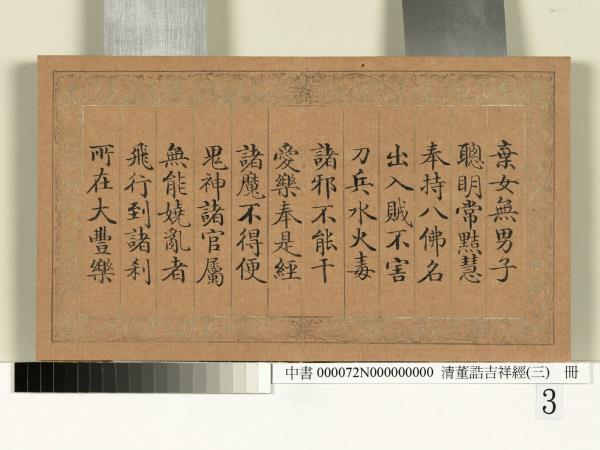 棄女無男子
聰明常黠慧
奉持八佛名
出入賊不害
刀兵水火毒
諸邪不能干
愛樂奉是經
諸魔不得便
鬼神諸官屬
無能嬈亂者
飛行到諸剎
所在大豐樂
中書 000072N000000000 清董誥吉祥經(三) 冊
3